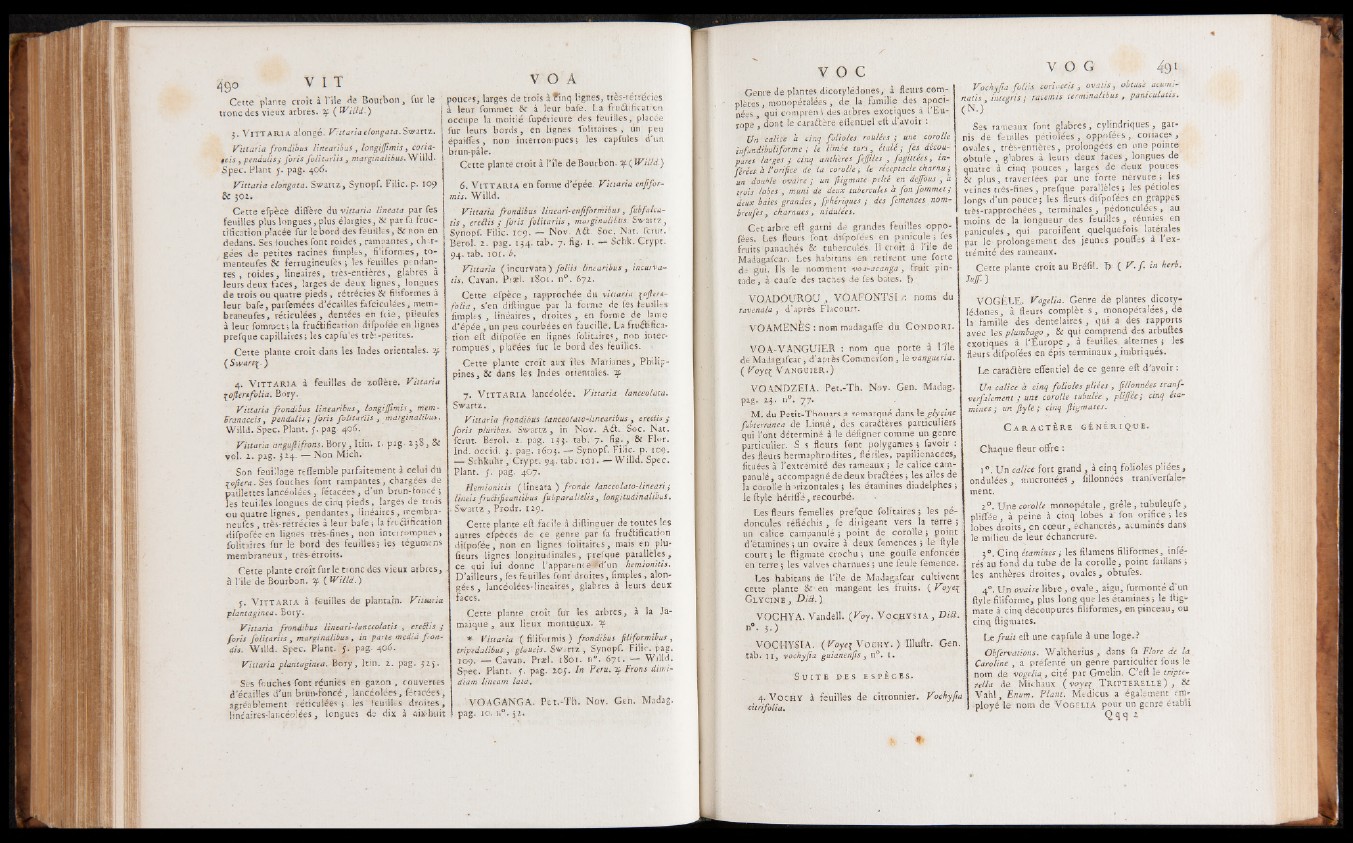 490 VIT
Cette plante croît à l'île de Bourbon, sur le
tronc des vieux arbres. ♃ (Willd.)
3. VITTARIA alongé. Vittaria elongata. Swartz.
Vittaria frondibus linearibus, longissimis, coria-
ceis, pendulis; soris solitariis, marginalibus. Willd.
Spec. Plant. 5. pag. 406.
Vittaria elongata. Swartz, Synops. Filic. p. 109
& 302.
Cette espèce diffère du vittaria lineata par ses
feuilles plus longues, plus élargies, & par sa fruc-
tification placée sur le bord des feuilles, & non en
dedans. Ses souches sont roides, rampantes, char-
gées de petites racines simples, filiformes, to-
menteuses & ferrugineuses; les feuilles pendan-
tes, roides, lineaires, très-entières, glabres à
leurs deux faces, larges de deux lignes, longues
de trois ou quatre pieds, rétrécies & filiformes à
leur base, parsemées d'écailles fasciculées, mem-
braneuses, réticulées, dentées en scie, piteuses
à leur sommet; la fructification disposée en lignes
presque capillaires; les capsules très-petites.
Cette plante croît dans les Indes orientales. ♃
(Swartz.)
4. VITTARIA à feuilles de zostère. Vittaria
zosteræfolia. Bory.
Vittaria frondibus linearibus, longissimis, mem-
branaceis, pendulis; soris solitariis, marginalibus.
Willd. Spec. Plant. 5. pag. 406.
Vittaria angustifrons. Bory, Itin. 1. pag. 238, &
vol. 2. pag. 324. — Non Mich.
Son feuillage ressemble parfaitement à celui du
zostera. Ses souches sont rampantes, chargées de
paillettes lancéolées, sétacées, d'un brun-foncé;
les feuilles longues de cinq pieds, larges de trois
ou quatre lignes, pendantes, linéaires, membra-
neuses, très-rétrécies à leur base; la fructification
disposée en lignes très-fines, non interrompues,
solitaires sur le bord des feuilles; les tégumens
membraneux, très-étroits.
Cette plante croît sur le tronc des vieux arbres,
à l'île de Bourbon. ♃ (Willd.)
5. VITTARIA à feuilles de plantain. Vittaria
plantaginea. Bory.
Vittaria frondibus lineari-lanceolatis, erectis;
soris solitariis, marginalibus, in parte mediâ fron-
dis. Willd. Spec. Plant. 5. pag. 406.
Vittaria plantaginea. Bory, Itin. 2. pag. 325.
Ses souches sont réunies en gazon, couvertes
d'écailles d'un brun-foncé, lancéolées, sétacées,
agréablement réticulées; les feuilles droites,
linéaires-lancéolées, longues de dix à dix-huit
VOA
pouces, larges de trois à cinq lignes, très-rétrécies
à leur sommet & à leur base. La fructification
occupe la moitié supérieure des feuilles, placée
sur leurs bords, en lignes solitaires, un peu
épaisses, non interrompues; les capsules d'un
brun-pâle.
Cette plante croît à l'île de Bourbon. ♃ (Willd.)
6. VITTARIA en forme d'épée. Vittaria ensifor-
mis. Willd.
Vittaria frondibus lineari-ensiformibus, subfalca-
tis, erectis; soris solitariis, marginalibus. Swartz,
Synops. Filic. 109. — Nov. Act. Soc. Nat. scrut.
Berol. 2. pag. 134. tab. 7. fig. 1. — Schk. Crypt.
94. tab. 101. b.
Vittaria (incurvata) foliis linearibus, incurva-
tis. Cavan. Præl. 1801. n°. 672.
Cette espèce, rapprochée du vittaria zosteræ-
folia, s'en distingue par la forme de ses feuilles
simples, linéaires, droites, en forme de lame
d'épée, un peu courbées en faucille. La fructifica-
tion est disposée en lignes solitaires, non inter-
rompues, placées sur le bord des feuilles.
Cette plante croît aux îles Mariannes, Philip-
pines, & dans les Indes orientales. ♃
7. VITTARIA lancéolée. Vittaria lanceolata.
Swartz.
Vittaria frondibus lanceolato-linearibus, erectis;
soris pluribus. Swartz, in Nov. Act. Soc. Nat.
scrut. Berol. 2. pag. 133. tab. 7. fig., & Flor.
Ind. occid. 3. pag. 1603. — Synops. Filic. p. 109.
— Schkuhr, Crypt. 94. tab. 101. — Willd. Spec.
Plant. 5. pag. 407.
Hemionitis (lineata) fronde lanceolato-lineari;
lineis fructificantibus subparallelis, longitudinalibus.
Swartz, Prodr. 129.
Cette plante est facile à distinguer de toutes les
autres espèces de ce genre par sa fructification
disposée, non en lignes solitaires, mais en plu-
sieurs lignes longitudinales, presque parallèles,
ce qui lui donne l'apparence d'un hemionitis.
D'ailleurs, ses feuilles sont droites, simples, alon-
gées, lancéolées-lineaires, glabres à leurs deux
faces.
Cette plante croît sur les arbres, à la Ja-
maïque, aux lieux montueux. ♃
* Vittaria (filiformis) frondibus filiformibus,
tripedalibus, glaucis. Swartz, Synops. Filic. pag.
109. — Cavan. Præl. 1801. n°. 671. — Willd.
Spec. Plant. 5. pag. 205. In Peru. ♃ Frons dimi-
diam lineam lata.
VOAGANGA. Pet.-Th. Nov. Gen. Madag.
pag. 10. n°. 32.
VOC
Genre de plantes dicotylédones, à fleurs com-
plètes, monopétalées, de la famille des apoci-
nées, qui comprend des arbres exotiques à l'Eu-
rope, dont le caractère essentiel est d'avoir:
Un calice à cinq folioles roulées; une corolle
infundibuliforme; le limbe tors, étalé; ses décou-
pures larges; cinq anthères sessiles, sagittées, in-
sérées à l'orifice de la corolle; le réceptacle charnu;
un double ovaire; un stigmate pelté en dessous, à
trois lobes, muni de deux tubercules à son sommet;
deux baies grandes, sphériques; des semences nom-
breuses, charnues, nidulées.
Cet arbre est garni de grandes feuilles oppo-
sées. Les fleurs sont disposées en panicule; ses
fruits panachés & tuberculés. Il croît à l'île de
Madagascar. Les habitans en retirent une sorte
de gui. Ils le nomment voa-acanga, fruit pin-
tade, à cause des taches de ses baies. ♄
VOADOUROU, VOAFONTSI: noms du
ravenala, d'après Flacourt.
VOAMENÈS: nom madagasse du CONDORI.
VOA-VANGUIER: nom que porte à l'île
de Madagascar, d'après Commerson, le vangueria.
(Voyez VANGUIER.)
VOANDZEIA. Pet.-Th. Nov. Gen. Madag.
pag. 23. n°. 77.
M. du Petit-Thouars a remarqué dans le glycine
subterranea de Linné, des caractères particuliers
qui l'ont déterminé à le désigner comme un genre
particulier. Ses fleurs sont polygames; savoir:
des fleurs hermaphrodites, stériles, papilionacées,
situées à l'extrémité des rameaux; le calice cam-
panulé, accompagné de deux bractées; les ailes de
la corolle horizontales; les étamines diadelphes;
le style hérissé, recourbé.
Les fleurs femelles presque solitaires; les pé-
doncules réfléchis, se dirigeant vers la terre;
un calice campanulé; point de corolle; point
d'étamines; un ovaire à deux semences; le style
court; le stigmate crochu; une gousse enfoncée
en terre; les valves charnues; une seule semence.
Les habitans de l'île de Madagascar cultivent
cette plante & en mangent les fruits. (Voyez
GLYCINE, Dict.)
VOCHYA. Vandell. (Voy. VOCHYSIA, Dict.
n°. 3.)
VOCHYSIA. (Voyez VOCHY.) Illustr. Gen.
tab. 11, vochysia guianensis, n°. 1.
SUITE DES ESPÈCES.
4. VOCHY à feuilles de citronnier. Vochysia
citrifolia.
VOG 491
Vochysia foliis coriaceis, ovatis, obtusè acumi-
natis, integris; racemis terminalibus, paniculatis.
(N.)
Ses rameaux sont glabres, cylindriques, gar-
nis de feuilles pétiolées, opposées, coriaces,
ovales, très-entières, prolongées en une pointe
obtuse, glabres à leurs deux faces, longues de
quatre à cinq pouces, larges de deux pouces
& plus, traversées par une forte nervure; les
veines très-fines, presque parallèles; les pétioles
longs d'un pouce; les fleurs disposées en grappes
très-rapprochées, terminales, pédonculées, au
moins de la longueur des feuilles, réunies en
panicules, qui paroissent quelquefois latérales
par le prolongement des jeunes pousses à l'ex-
trémité des rameaux.
Cette plante croît au Brésil. ♄ (V. s. in herb.
Juss.)
VOGÈLE. Vogelia. Genre de plantes dicoty-
lédones, à fleurs complètes, monopétalées, de
la famille des dentelaires, qui a des rapports
avec les plumbago, & qui comprend des arbustes
exotiques à l'Europe, à feuilles alternes; les
fleurs disposées en épis terminaux, imbriqués.
Le caractère essentiel de ce genre est d'avoir:
Un calice à cinq folioles pliées, sillonnées trans-
versalement; une corolle tubulée, plissée; cinq éta-
mines; un style; cinq stigmates.
CARACTÈRE GÉNÉRIQUE.
Chaque fleur offre:
1°. Un calice fort grand, à cinq folioles pliées,
ondulées, mucronées, sillonnées transversale-
ment.
2°. Une corolle monopétale, grêle, tubuleuse,
plissée, à peine à cinq lobes à son orifice; les
lobes droits, en cœur, échancrés, acuminés dans
le milieu de leur échancrure.
3°. Cinq étamines; les filamens filiformes, insé-
rés au fond du tube de la corolle, point saillans;
les anthères droites, ovales, obtuses.
4°. Un ovaire libre, ovale, aigu, surmonté d'un
style filiforme, plus long que les étamines; le stig-
mate à cinq découpures filiformes, en pinceau, ou
cinq stigmates.
Le fruit est une capsule à une loge.?
Observations. Waltherius, dans sa Flore de la
Caroline, a présenté un genre particulier sous le
nom de vogelia, cité par Gmelin. C'est le tripte-
rella de Michaux (voyez TRIPTERELLE), &
Vahl, Enum. Plant. Medicus a également em-
ployé le nom de VOGELIA pour un genre établi
Qqq 2